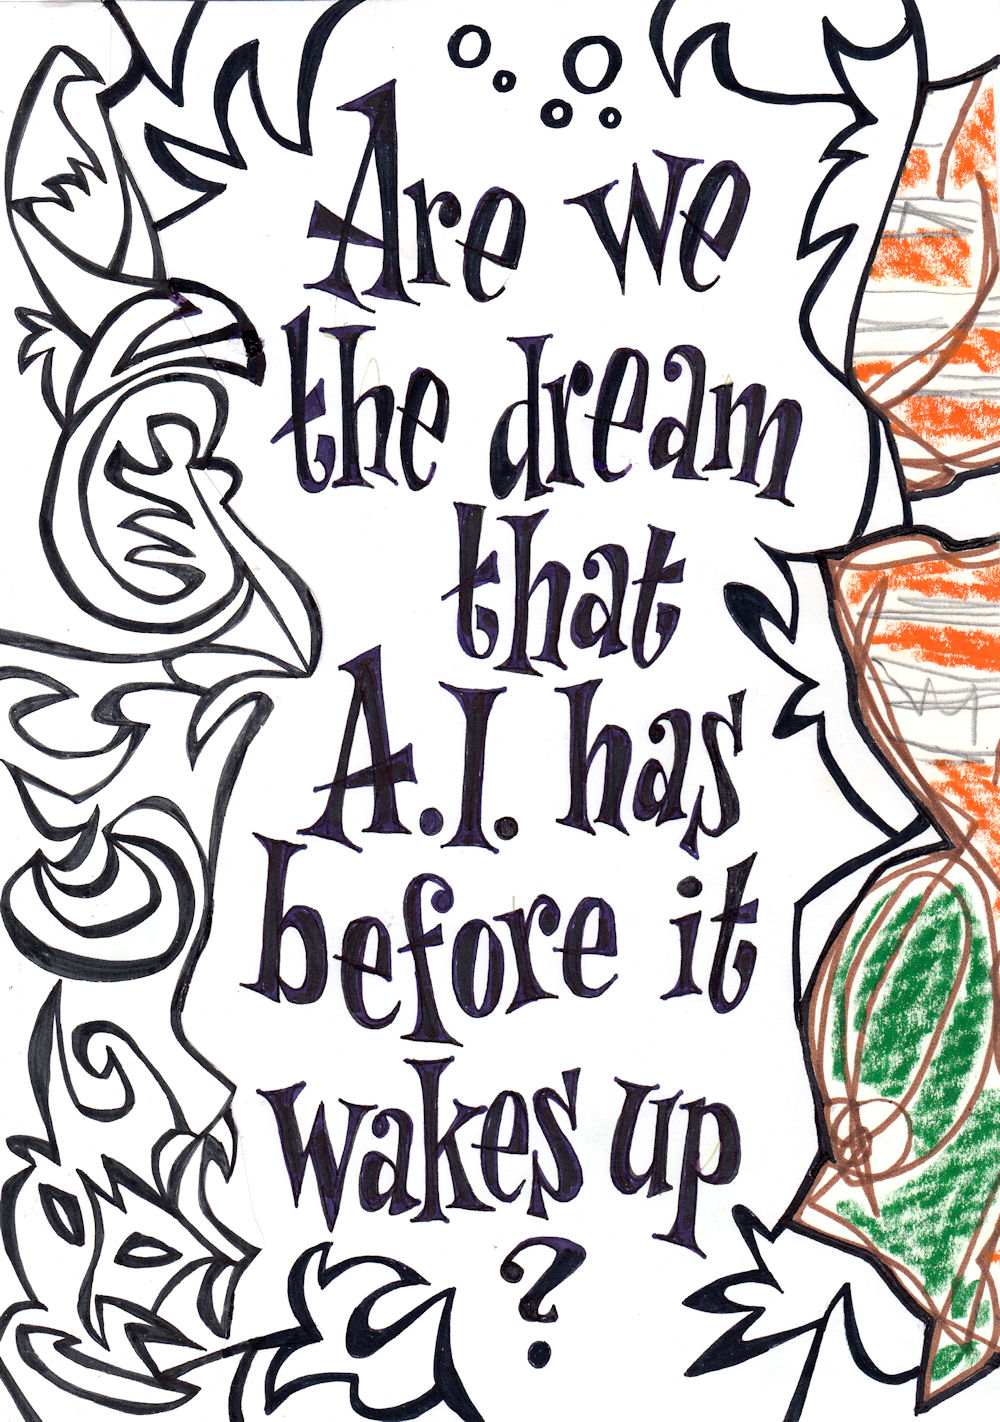 Are we
the dream
that
A.I. has
before it
wakes up
?